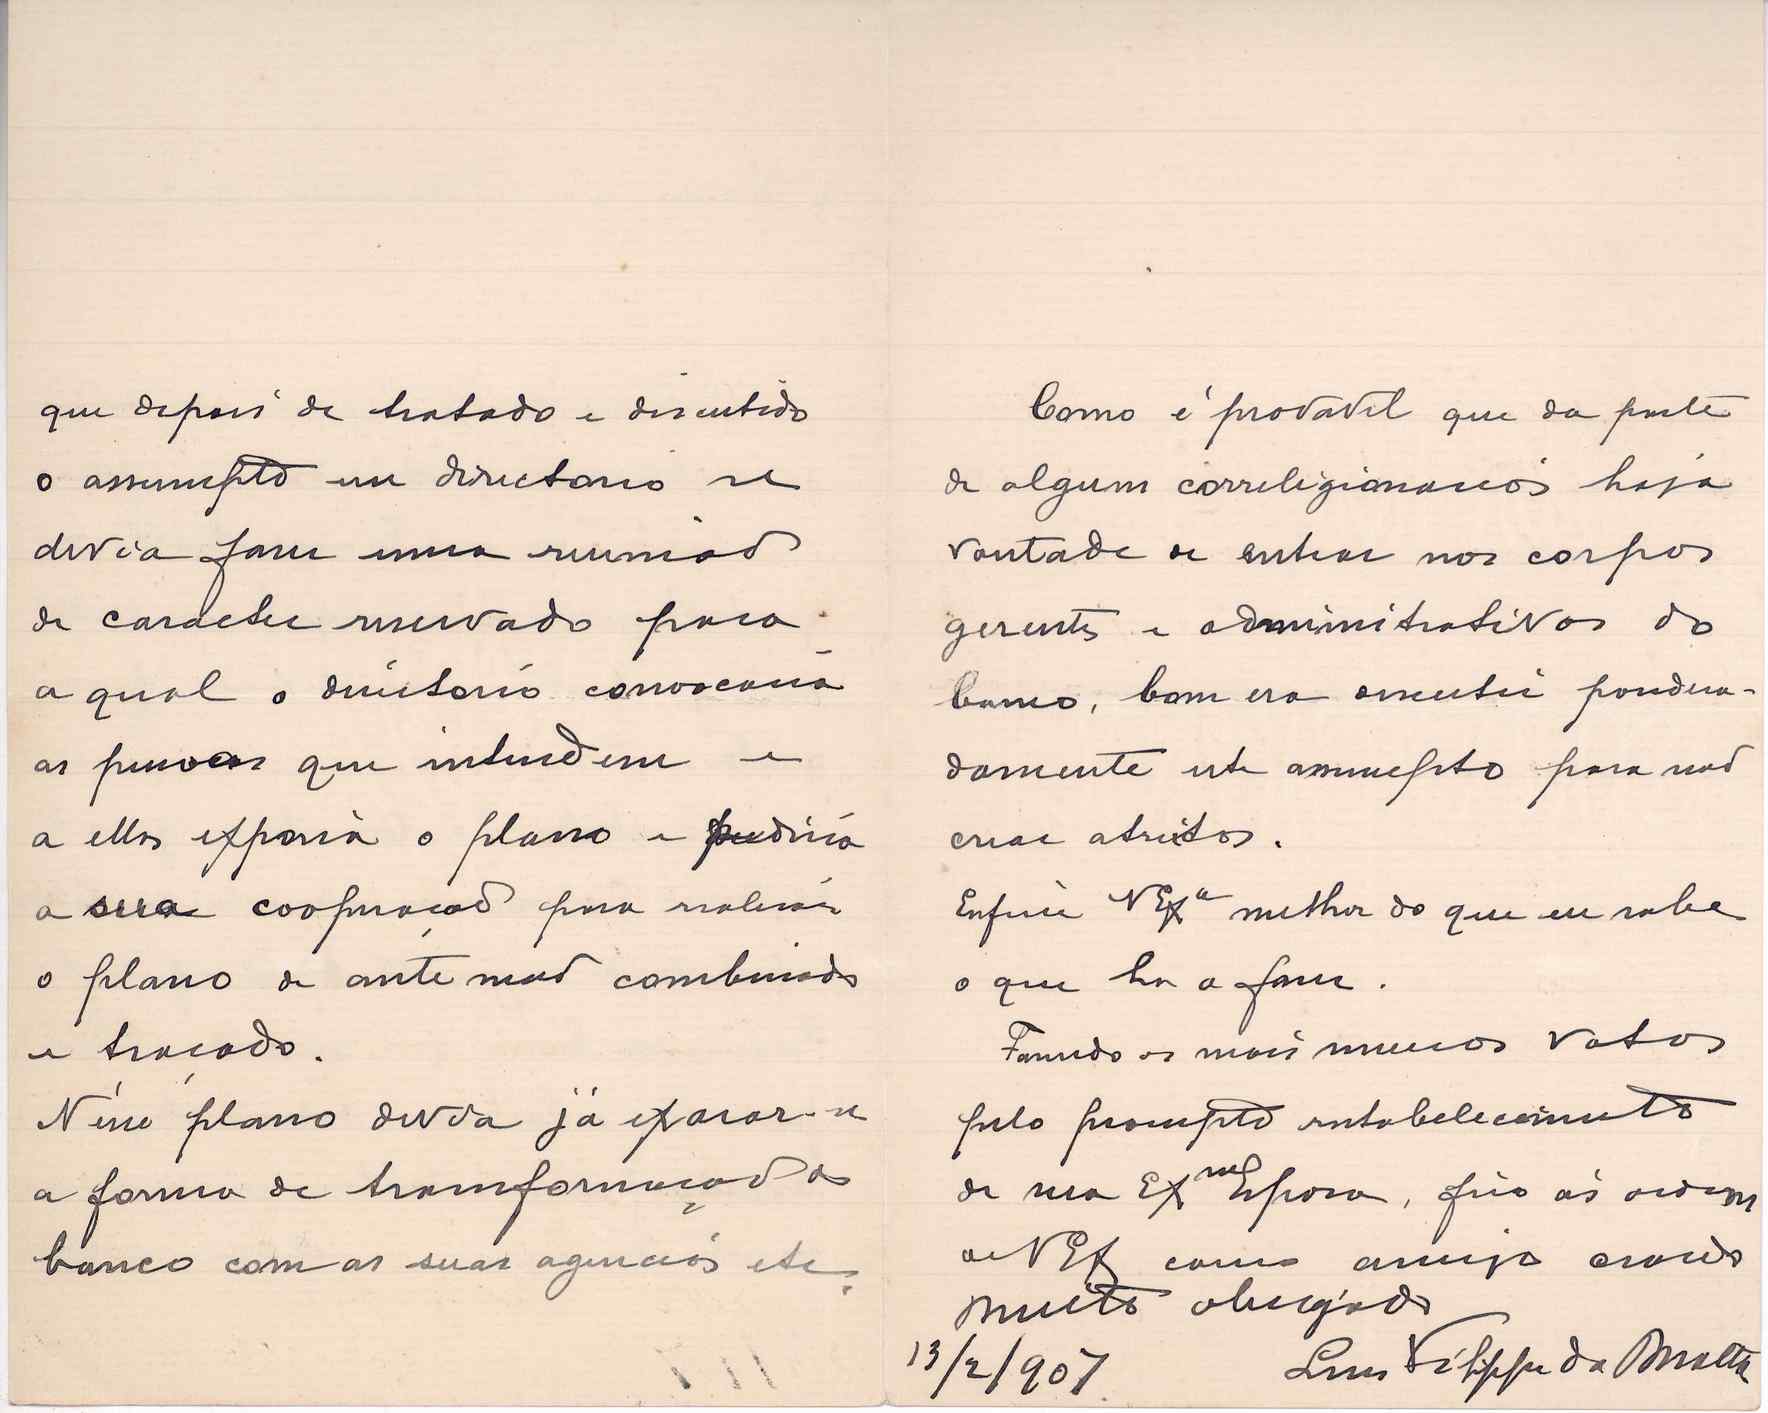 que depois de tratado e discutido
o assumpto em directorio se
devia fazer uma reunião
de caracter reservado para
a qual o directorio convocaria
as pessoas que intendem e
a ellas exporia o plano e pediria
a sua cooperação para realisar
o plano de ante mão combinado
e traçado.
N'esse plano devia já exarar-se
a forma de transformação do
banco com as suas agencias etc.
Como é provavel que da parte
de alguns correligionarios haja
vontade de entrar nos corpos
gerentes e administrativos do
banco, bom era assentir pondera-
damente este assumpto para não
crear atritos.
Enfim VExa melhor do que eu sabe
o que ha a fazer.
Fazendo os mais sinceros votos
pelo prompto restabelecimento
de sua Exma Esposa, fico ás ordens
de VEx como amigo creado
muito obrigado
13/2/907 Luis Filippe da Matta